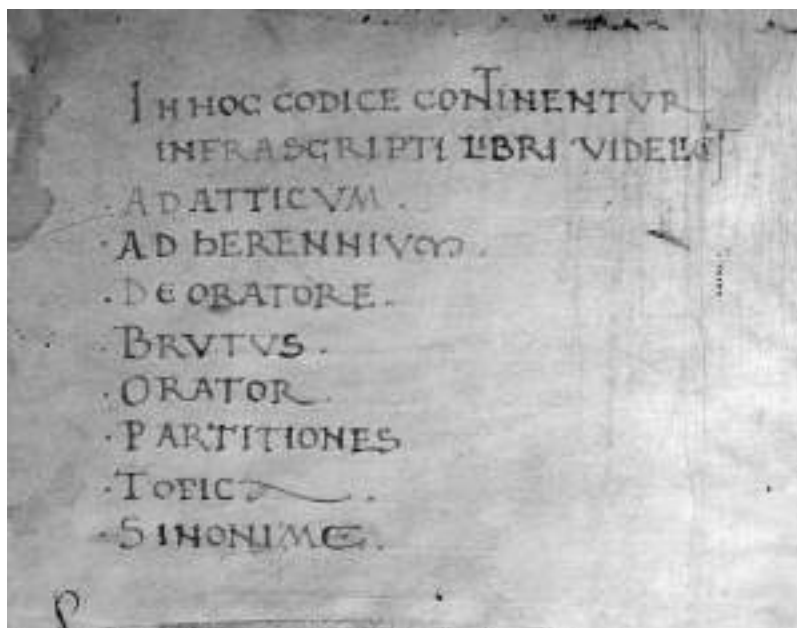 IN HOC CODICE CONTINENTVR
INFRASCRIPTI LIBRI VIDELICET
·AD ATTICVM·
·AD HERENNIVM·
·DE ORATORE·
·BRVTVS·
·ORATOR·
·PARTITIONES
·TOPICA·
·SINONIME·